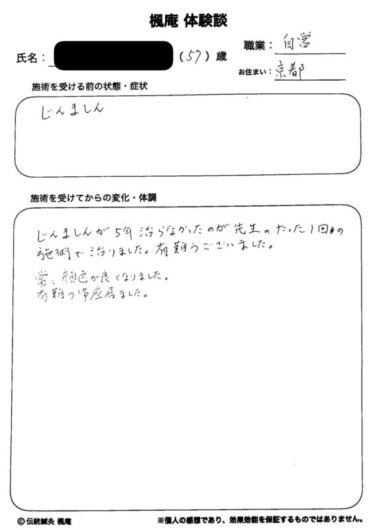 楓庵 体験談
氏名： （57）歳
職業： 自営
お住まい： 京都
施術を受ける前の状態・症状
じんましん
施術を受けてからの変化・体調
じんましんが5年治らなかったのが先生のたった1回の
施術で治りました。有難うございました。
常に顔色が良くなりました。
有難う御座居ました。
© 伝統鍼灸 楓庵
※個人の感想であり、効果効能を保証するものではありません。